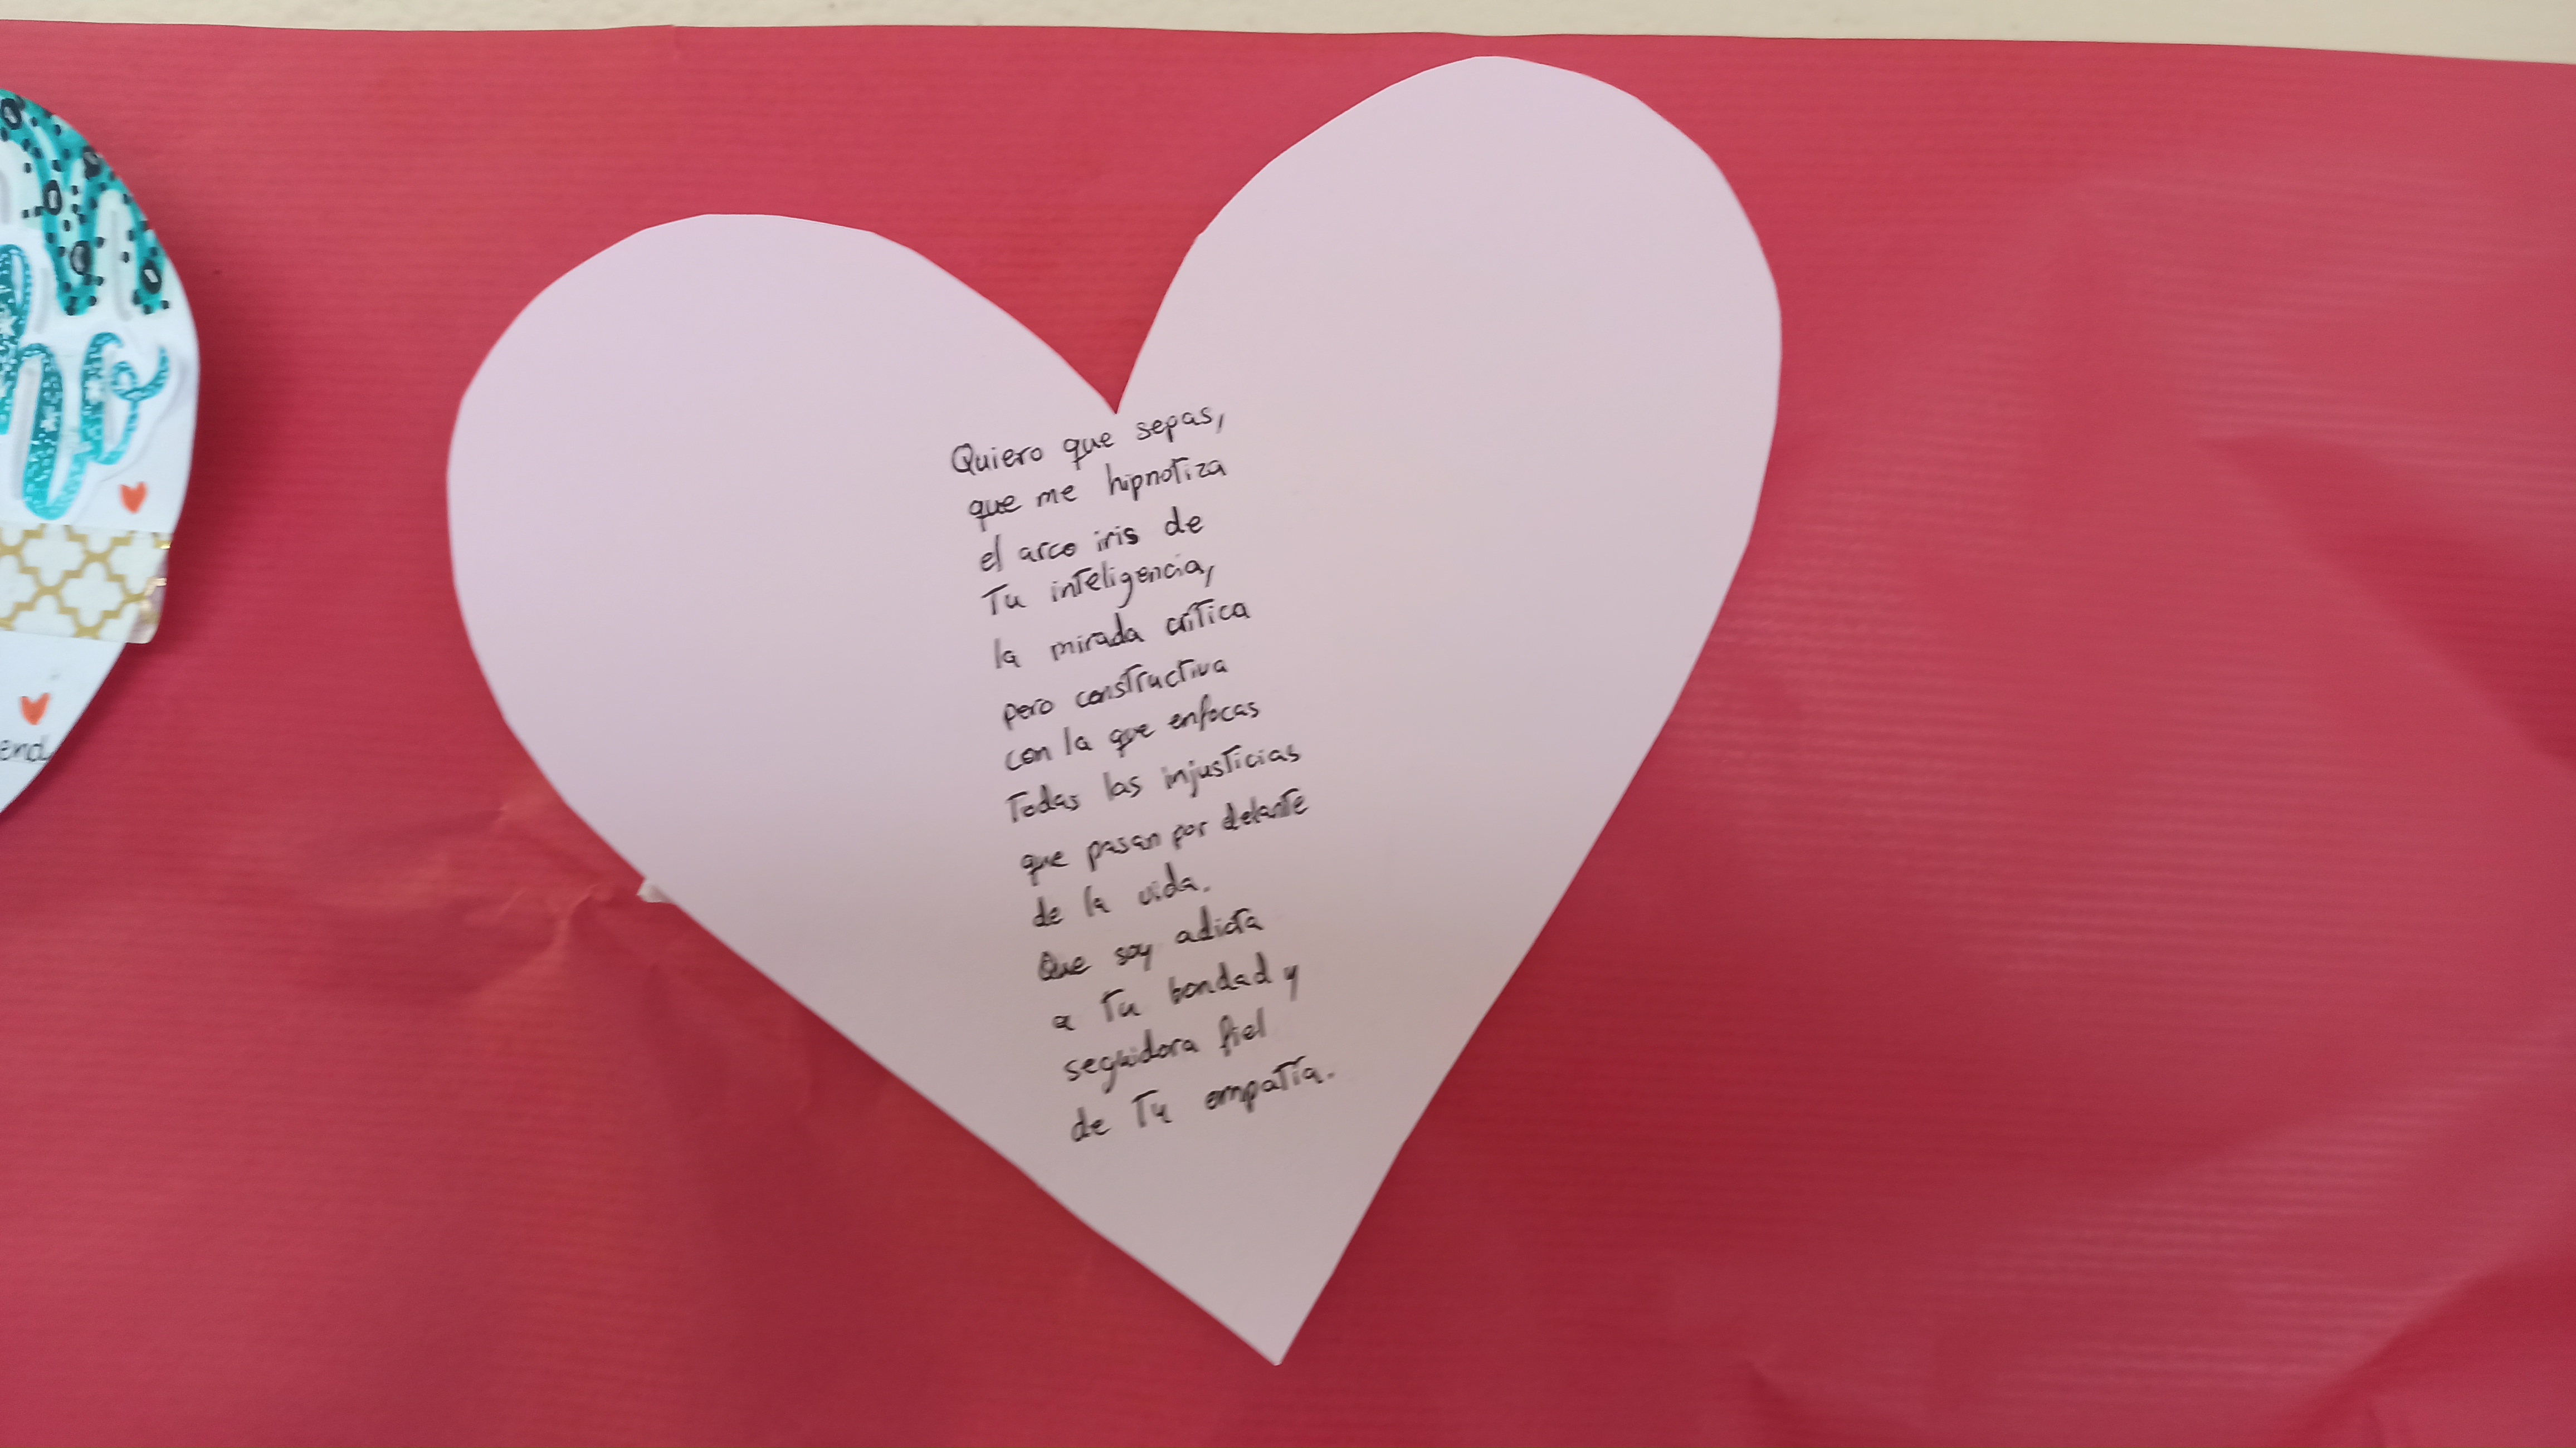 Quiero que sepas,
que me hipnotiza
el arco iris de
Tu inteligencia,
la mirada crítica
pero constructiva
con la que enfocas
Todas las injusticias
que pasan por delante
de la vida.
Que soy adicta
a Tu bondad y
seguidora fiel
de Tu empatía.
end